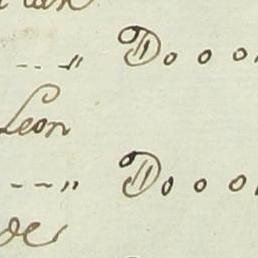 - - „ D o o o
Leon
- - - „ D o o o
de